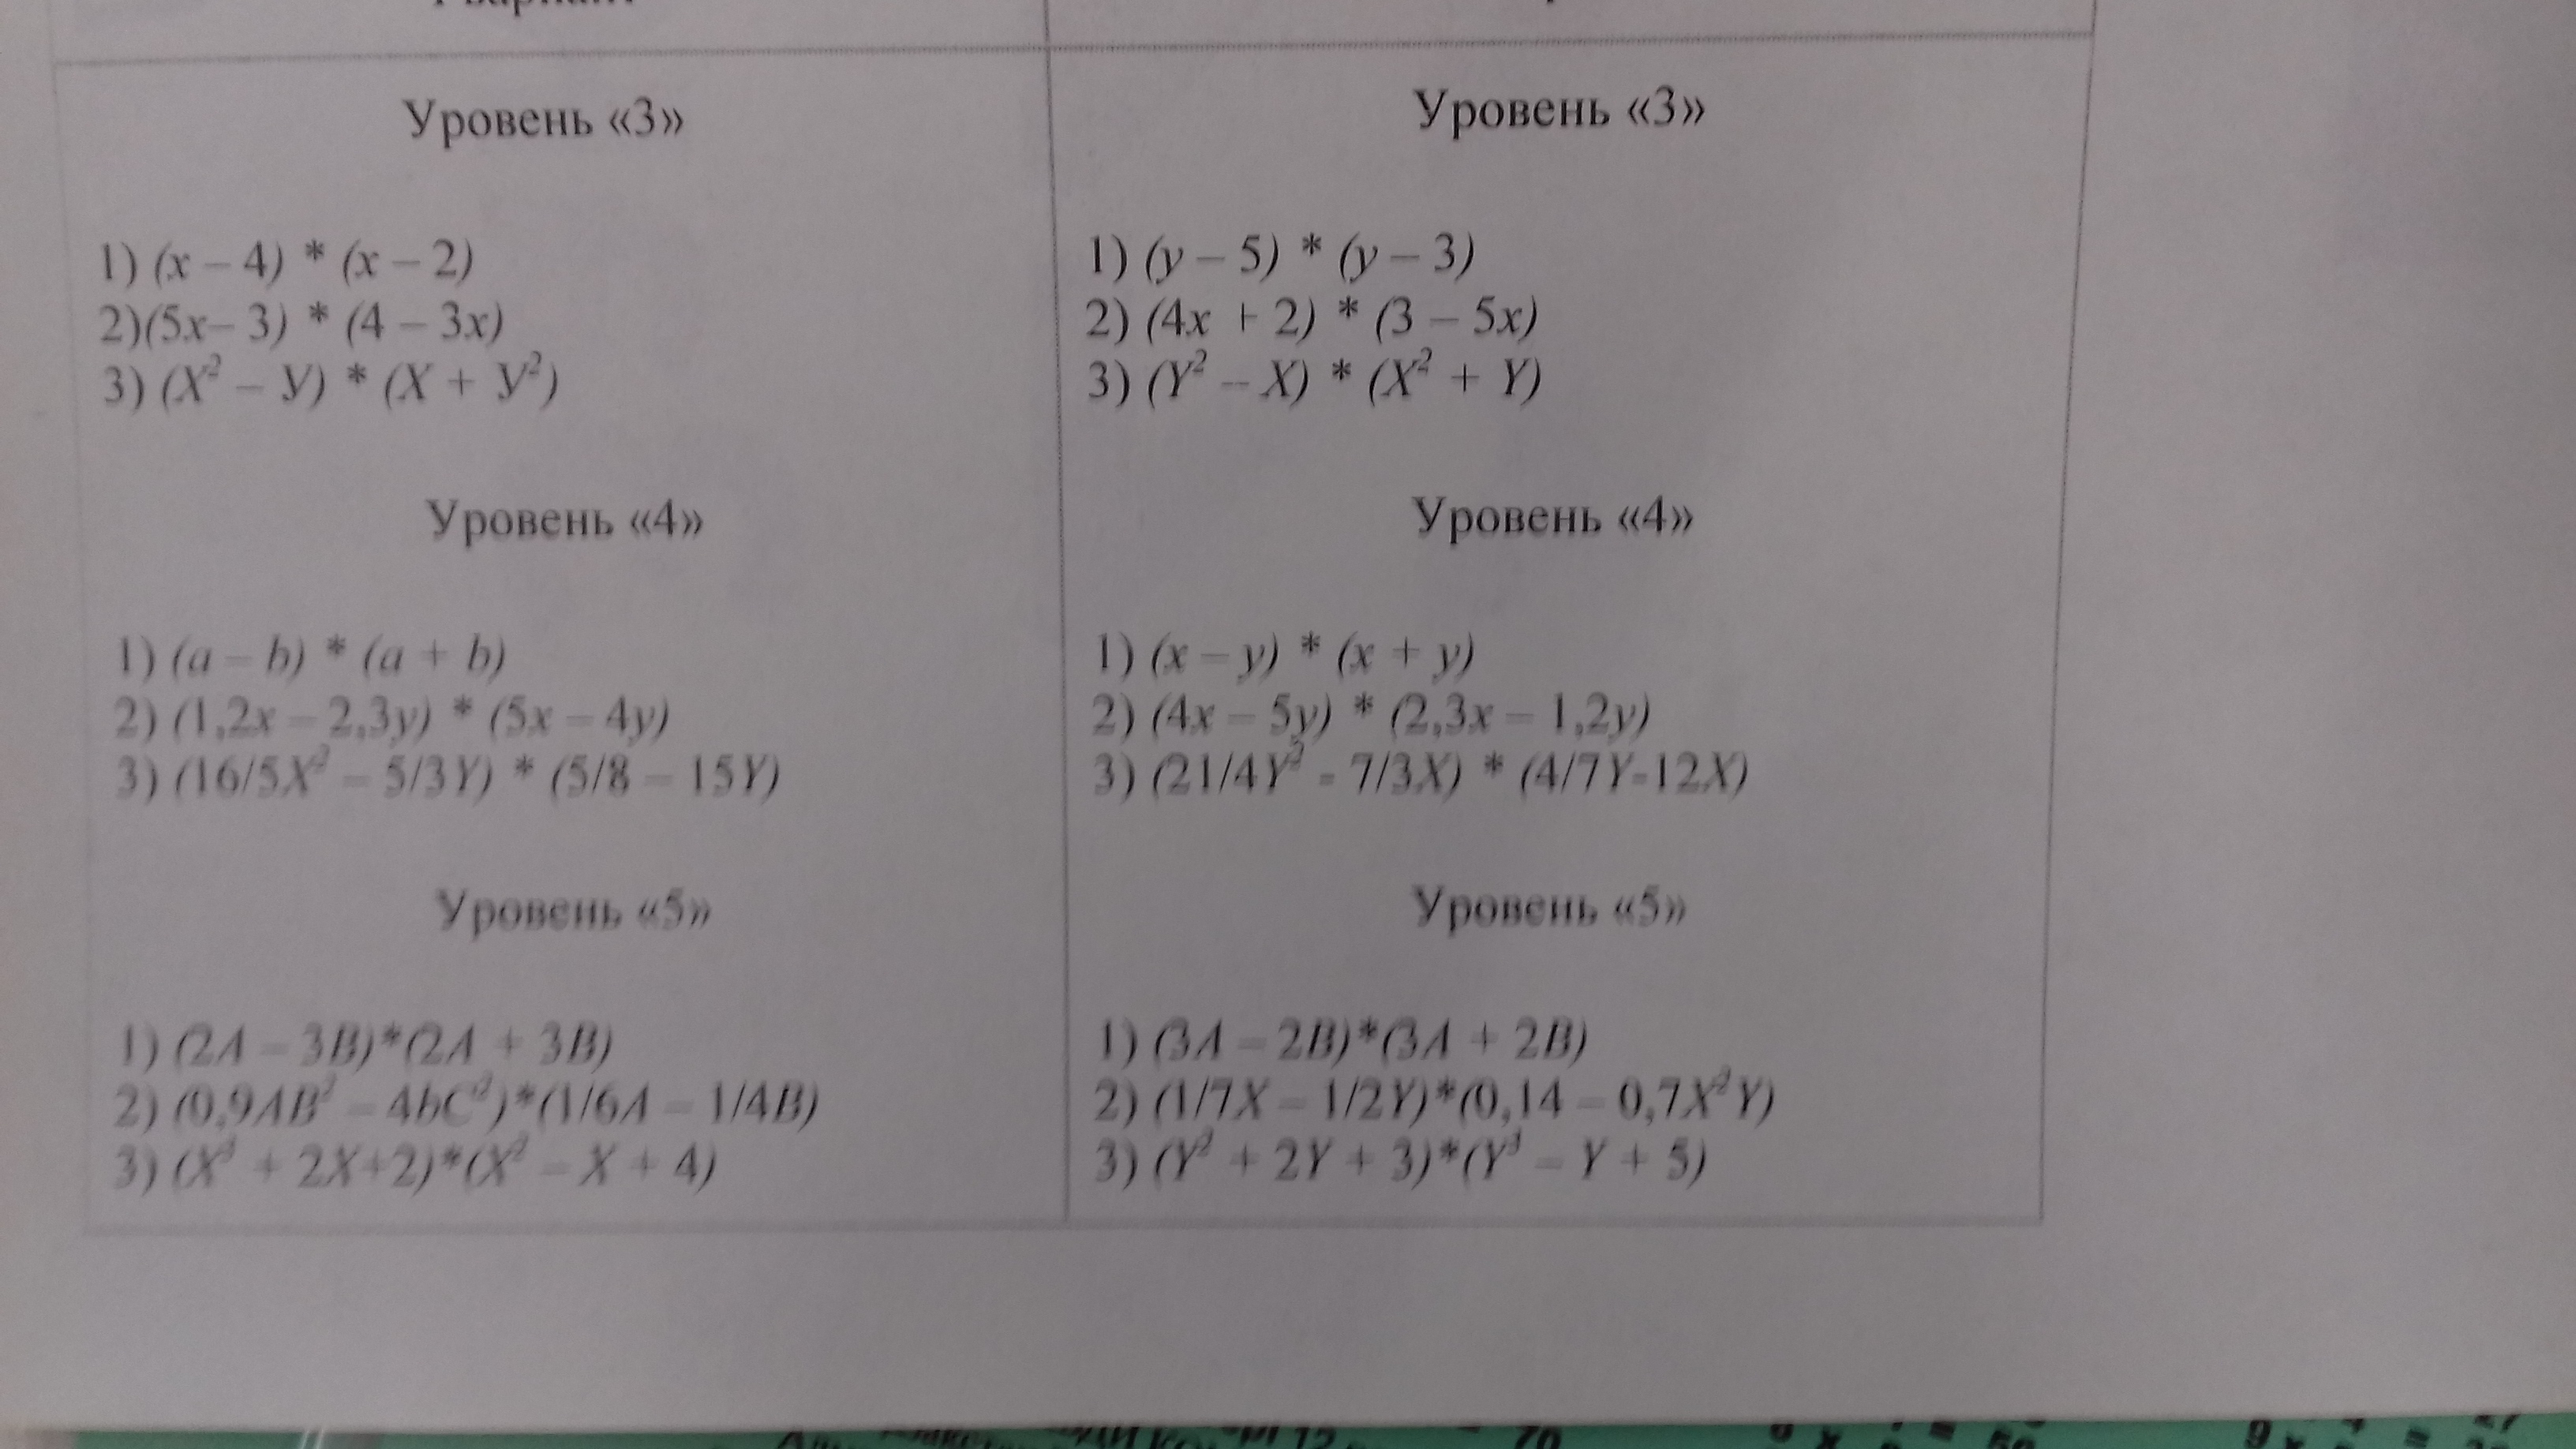 1 вариант
Уровень «3»
1) (x – 4) * (x – 2)
2)(5x– 3) * (4 – 3x)
3) (X² – У) * (X + У²)
Уровень «4»
1) (a – b) * (a + b)
2) (1,2x – 2,3y) * (5x – 4y)
3) (16/5X² – 5/3Y) * (5/8 – 15Y)
Уровень «5»
1) (2A – 3B)*(2A + 3B)
2) (0,9AB² – 4bC²)*(1/6A – 1/4B)
3) (X³ + 2X+2)*(X² – X + 4)
Уровень «3»
1) (y – 5) * (y – 3)
2) (4x + 2) * (3 – 5x)
3) (Y² – X) * (X² + Y)
Уровень «4»
1) (x – y) * (x + y)
2) (4x – 5y) * (2,3x – 1,2y)
3) (21/4Y² - 7/3X) * (4/7Y-12X)
Уровень «5»
1) (3A – 2B)*(3A + 2B)
2) (1/7X – 1/2Y)*(0,14 – 0,7X²Y)
3) (Y² + 2Y + 3)*(Y³ – Y + 5)